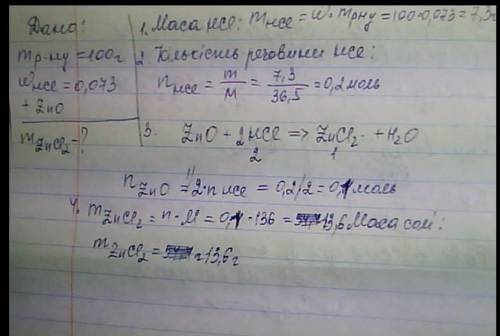 Дано:
mр-ну = 100г
wHCl = 0,073
+ ZnO
mZnCl2 - ?
1. Маса HCl: mHCl = w · mр-ну = 100 · 0,073 = 7,3г
2 Кількість речовини HCl:
nHCl = m/M = 7,3/36,5 = 0,2 моль
3. ZnO + 2HCl => ZnCl2 + H2O
2 1
nZnO = 2·n HCl = 0,2/2 = 0,1 моль
4. mZnCl2 = n · M = 0,1 · 136 = 13,6 Маса солі:
mZnCl2 = 13,6г